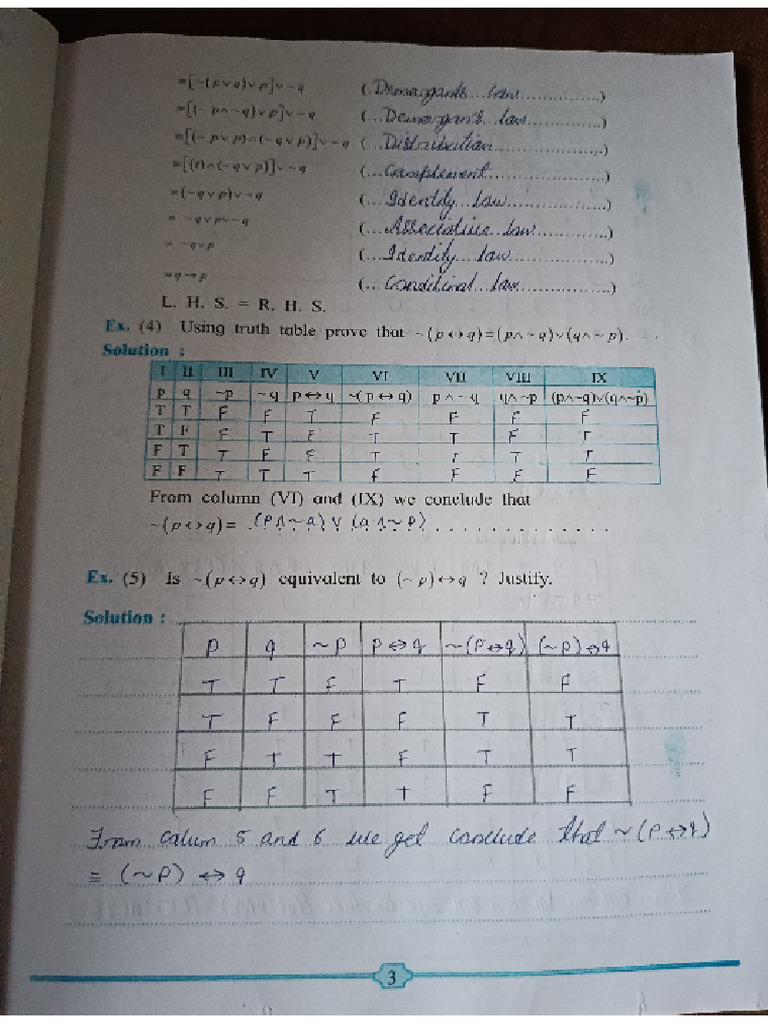 =[~(p∨q)∨p]∨~q (.Demorgan's law............)
=[(~p∧~q)∨p]∨~q (...Demorgan's law............)
=[(~p∨p)∧(~q∨p)]∨~q (...Distribution............)
=[(t)∧(~q∨p)]∨~q (...Complement............)
=(~q∨p)∨~q (...Identity law............)
= ~q∨p∨~q (...Associative law............)
= ~q∨p (...Identity law............)
=q→p (...Conditional law............)
L. H. S. = R. H. S.
Ex. (4) Using truth table prove that ~(p↔q)=(p∧~q)∨(q∧~p).
Solution :
I II III IV V VI VII VIII IX
p q ~p ~q p↔q ~(p↔q) p∧~q q∧~p (p∧~q)∨(q∧~p)
T T F F T F F F F
T F F T F T T F T
F T T F F T T T T
F F T T T F F F F
From column (VI) and (IX) we conclude that
~(p↔q)= (p∧~q) ∨ (q∧~p)
Ex. (5) Is ~(p↔q) equivalent to (~p)↔q ? Justify.
Solution :
p q ~p p↔q ~(p↔q) (~p)↔q
T T F T F F
T F F F T T
F T T F T T
F F T T F F
From colum 5 and 6 we get conclude that ~(p↔q)
≡ (~p) ↔ q
3